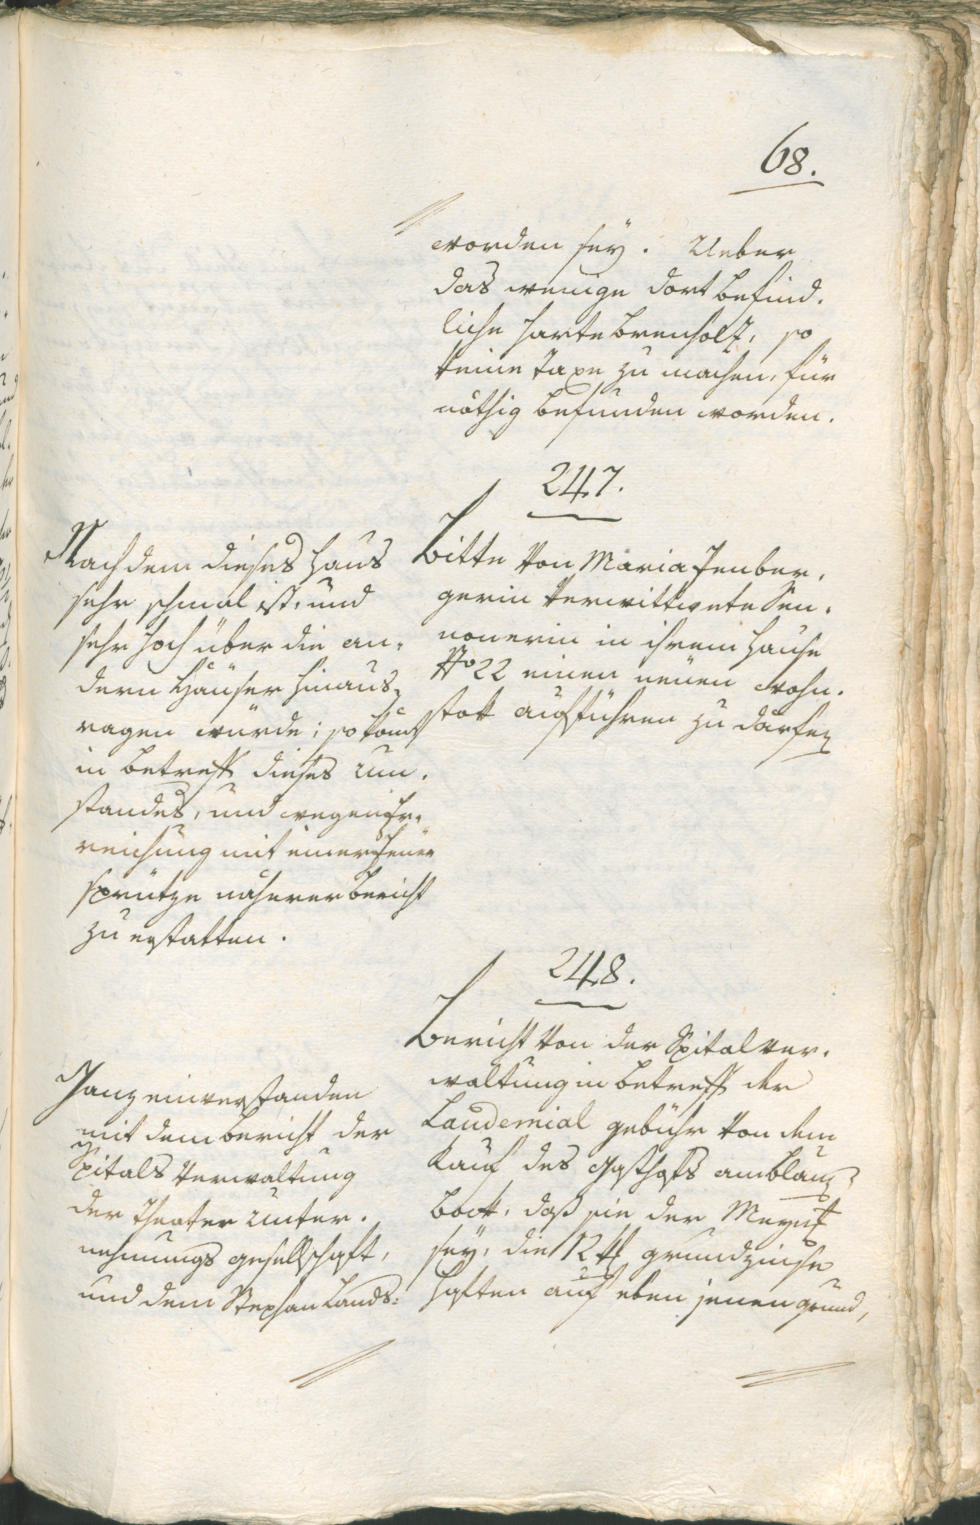 68.
worden seӱ. Ueber
das wenige dort befind.
liche harte brenholz, so
keine Taxe zu machen, für
nöthig befunden worden.
247.
Bitte von Maria Jenber.
gerin verwittwete Sen.
nonerin in ihrem Hause
No 22 einen neuen wohn.
stok aufführen zu därfen
Nachdem dieses Haus
sehr schmal ist, und
sehr hoch über die an.
dern Häuser hinaus
ragen würde; so komt
in betreff dieses um.
standes, und wegen Er.
reichung mit einer Feuer
sprütze näherer bericht
zu erstatten.
248.
Bericht von der Spitalver.
waltung in betreff der
Laudemial gebühr von dem
Kauf des Gasthofs am blauen
bock, daß sie der Meynung
seӱ, die 12 f grundzinse
haften auf eben jenen grund,
Ganz einverstanden
mit dem bericht der
Spitals Verwaltung
der Theater Unter.
nehmungs gesellschaft,
und dem Stephan Lands: